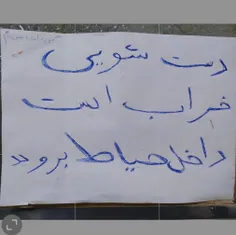 دست شویی
خراب است
داخل حیاط برو »